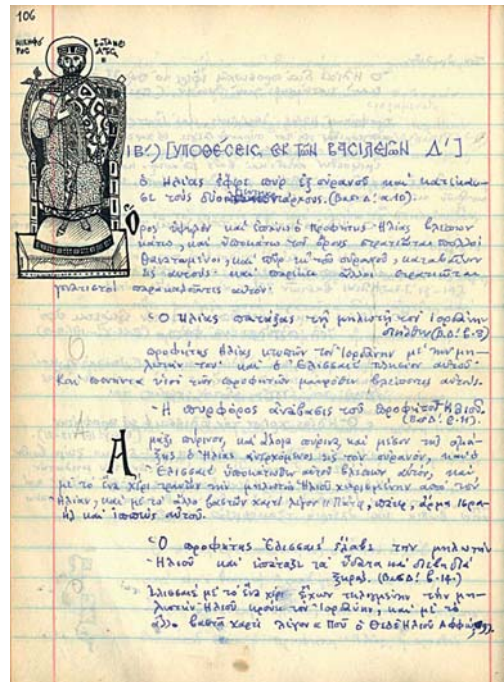 106
ΝΙΚΗΦΟ
ΡΟΣ
ΒΟΤΑΝΕΙ
ΑΤΗΣ
ΙΒ΄) [ΥΠΟΘΕΣΕΙΣ ΕΚ ΤΩΝ ΒΑΣΙΛΕΙΩΝ Δ΄]
ὁ Ἠλίας ἔφερε πῦρ ἐξ οὐρανοῦ καὶ κατέκαυ-
σε τοὺς δύο
Ὄρος ὑψηλὸν καὶ ἐπάνω ὁ προφήτης Ἠλίας βλέπων
κάτω, καὶ ὑποκάτω τοῦ ὄρους στρατιῶται πολλοὶ
θανατωμένοι, καὶ πῦρ ἐκ τοῦ οὐρανοῦ καταβαῖνον
εἰς αὐτούς· καὶ παρέκει ἄλλοι στρατιῶται
γονατιστοὶ παρακαλοῦντες αὐτόν.
Ὁ Ἠλίας πατάξας τῇ μηλωτῇ τὸν Ἰορδάνην
διῆλθεν
προφήτης Ἠλίας κτυπῶν τὸν Ἰορδάνην μὲ τὴν μη-
λωτήν του· καὶ ὁ Ἐλισσαιὲ πλησίον αὐτοῦ.
Καὶ πενῆντα υἱοὶ τῶν προφητῶν μακρόθεν βλέποντες αὐτούς.
Ἡ πυρφόρος ἀνάβασις τοῦ προφήτου Ἠλιού.
Ἁμάξι πύρινον, καὶ ἄλογα πύρινα, καὶ μέσον τῆς ἁμά-
ξης ὁ Ἠλίας ἀνερχόμενος εἰς τὸν οὐρανόν, καὶ ὁ
Ἐλισσαιὲ ὑποκάτωθεν αὐτοῦ βλέπων αὐτόν, καὶ
μὲ τὸ ἕνα χέρι τραβῶν τὴν μηλωτὴν Ἠλιοῦ ἀπὸ τὸν
Ἠλίαν, καὶ μὲ τὸ ἄλλο βαστῶν χαρτὶ λέγον « Πάτερ, πάτερ, ἅρμα Ἰσρα-
ὴλ καὶ ἱππεὺς αὐτοῦ.
Ὁ προφήτης Ἐλισσαιὲ ἔλαβε τὴν μηλωτὴν
Ἠλιοῦ καὶ ἐπάταξε τὰ ὕδατα καὶ διέβη διὰ
ξηρᾶς. (Βασ. Δ΄. β. 14.)
Ἐλισσαιὲ μὲ τὸ ἕνα χέρι ἔχων τυλιγμένην τὴν μη-
λωτὴν Ἠλιοῦ κρούει τὸν Ἰορδάνην, καὶ μὲ τὸ
ἄλλο βαστᾷ χαρτὶ λέγον « Ποῦ ὁ Θεὸς Ἠλιοῦ Ἀφφώ